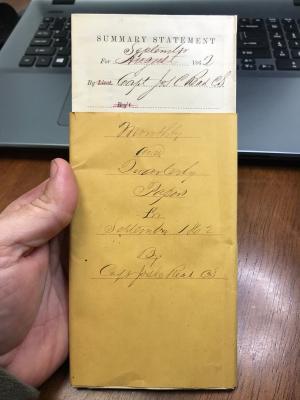 SUMMARY STATEMENT
September
For August 1862
By Lieut. Capt Jos C Read CS
Reg't
Monthly
and
Quarterly
Report
for
September 1862
By
Capt Jos C Read CS